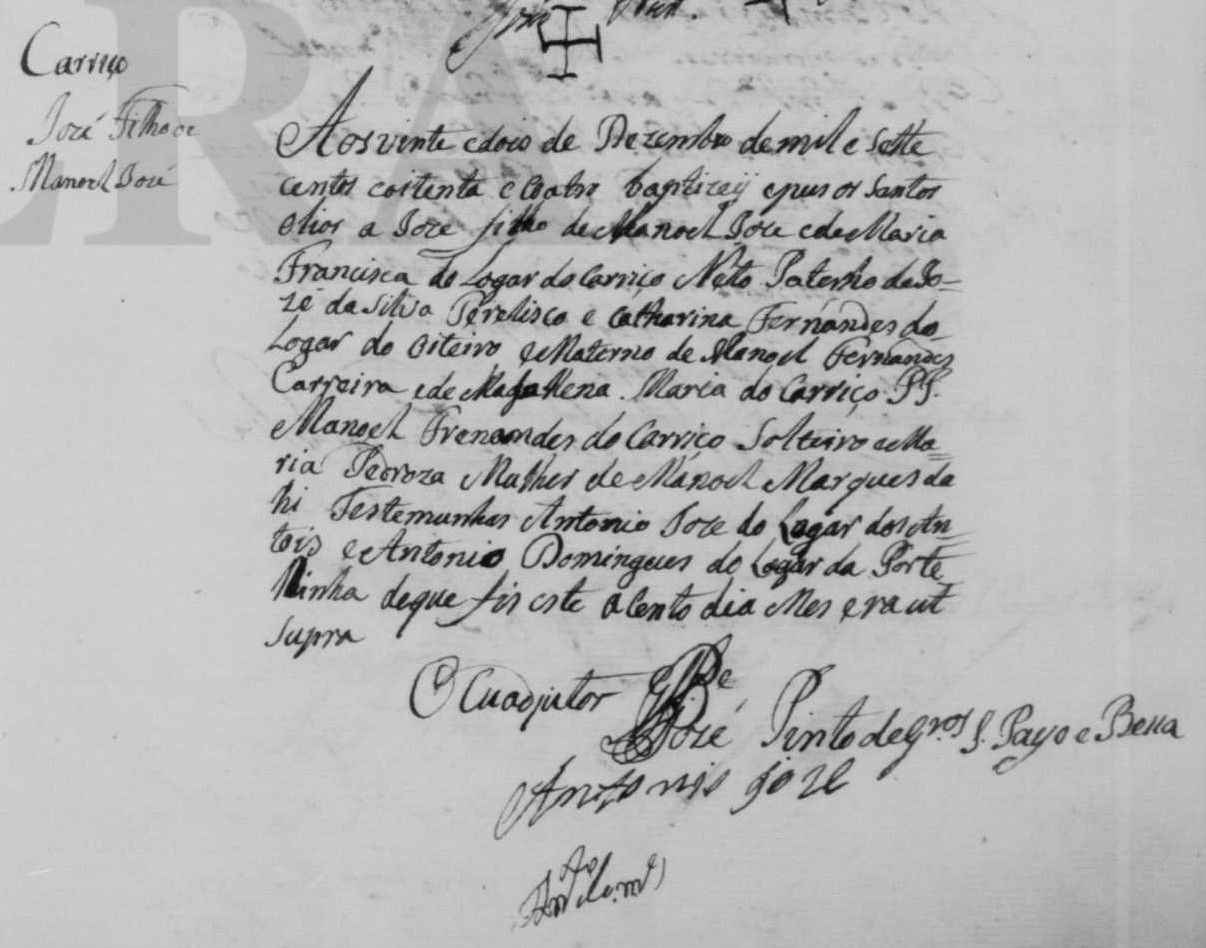 Carriço
Jozé Filho de
Manoel Jozé
Aos vinte e dois de Dezembro de mil e Sette
centos e oitenta e coatro baptizeij e pus os Santos
olios a Joze filho de Manoel Joze e de Maria
Francisca do Logar do Carriço Neto Paterno de Jo=
zé da Silva e Catharina Fernandes do
Logar do Oiteiro e Materno de Manoel Fernandes
Carreira e de Magdallena Maria do Carriço PP.
Manoel Frenandes do Carriço Solteiro e Ma=
ria Pedroza Mulher de Manoel Marques da
hi Testemunhas Antonio Joze do Logar dos An=
tois e Antonio Domingues do Logar da Porte
linha de que fis este acento dia Mes e ra ut
supra
O Cuadjutor Pe
José Pinto de S. Payo e
Antonio Joze